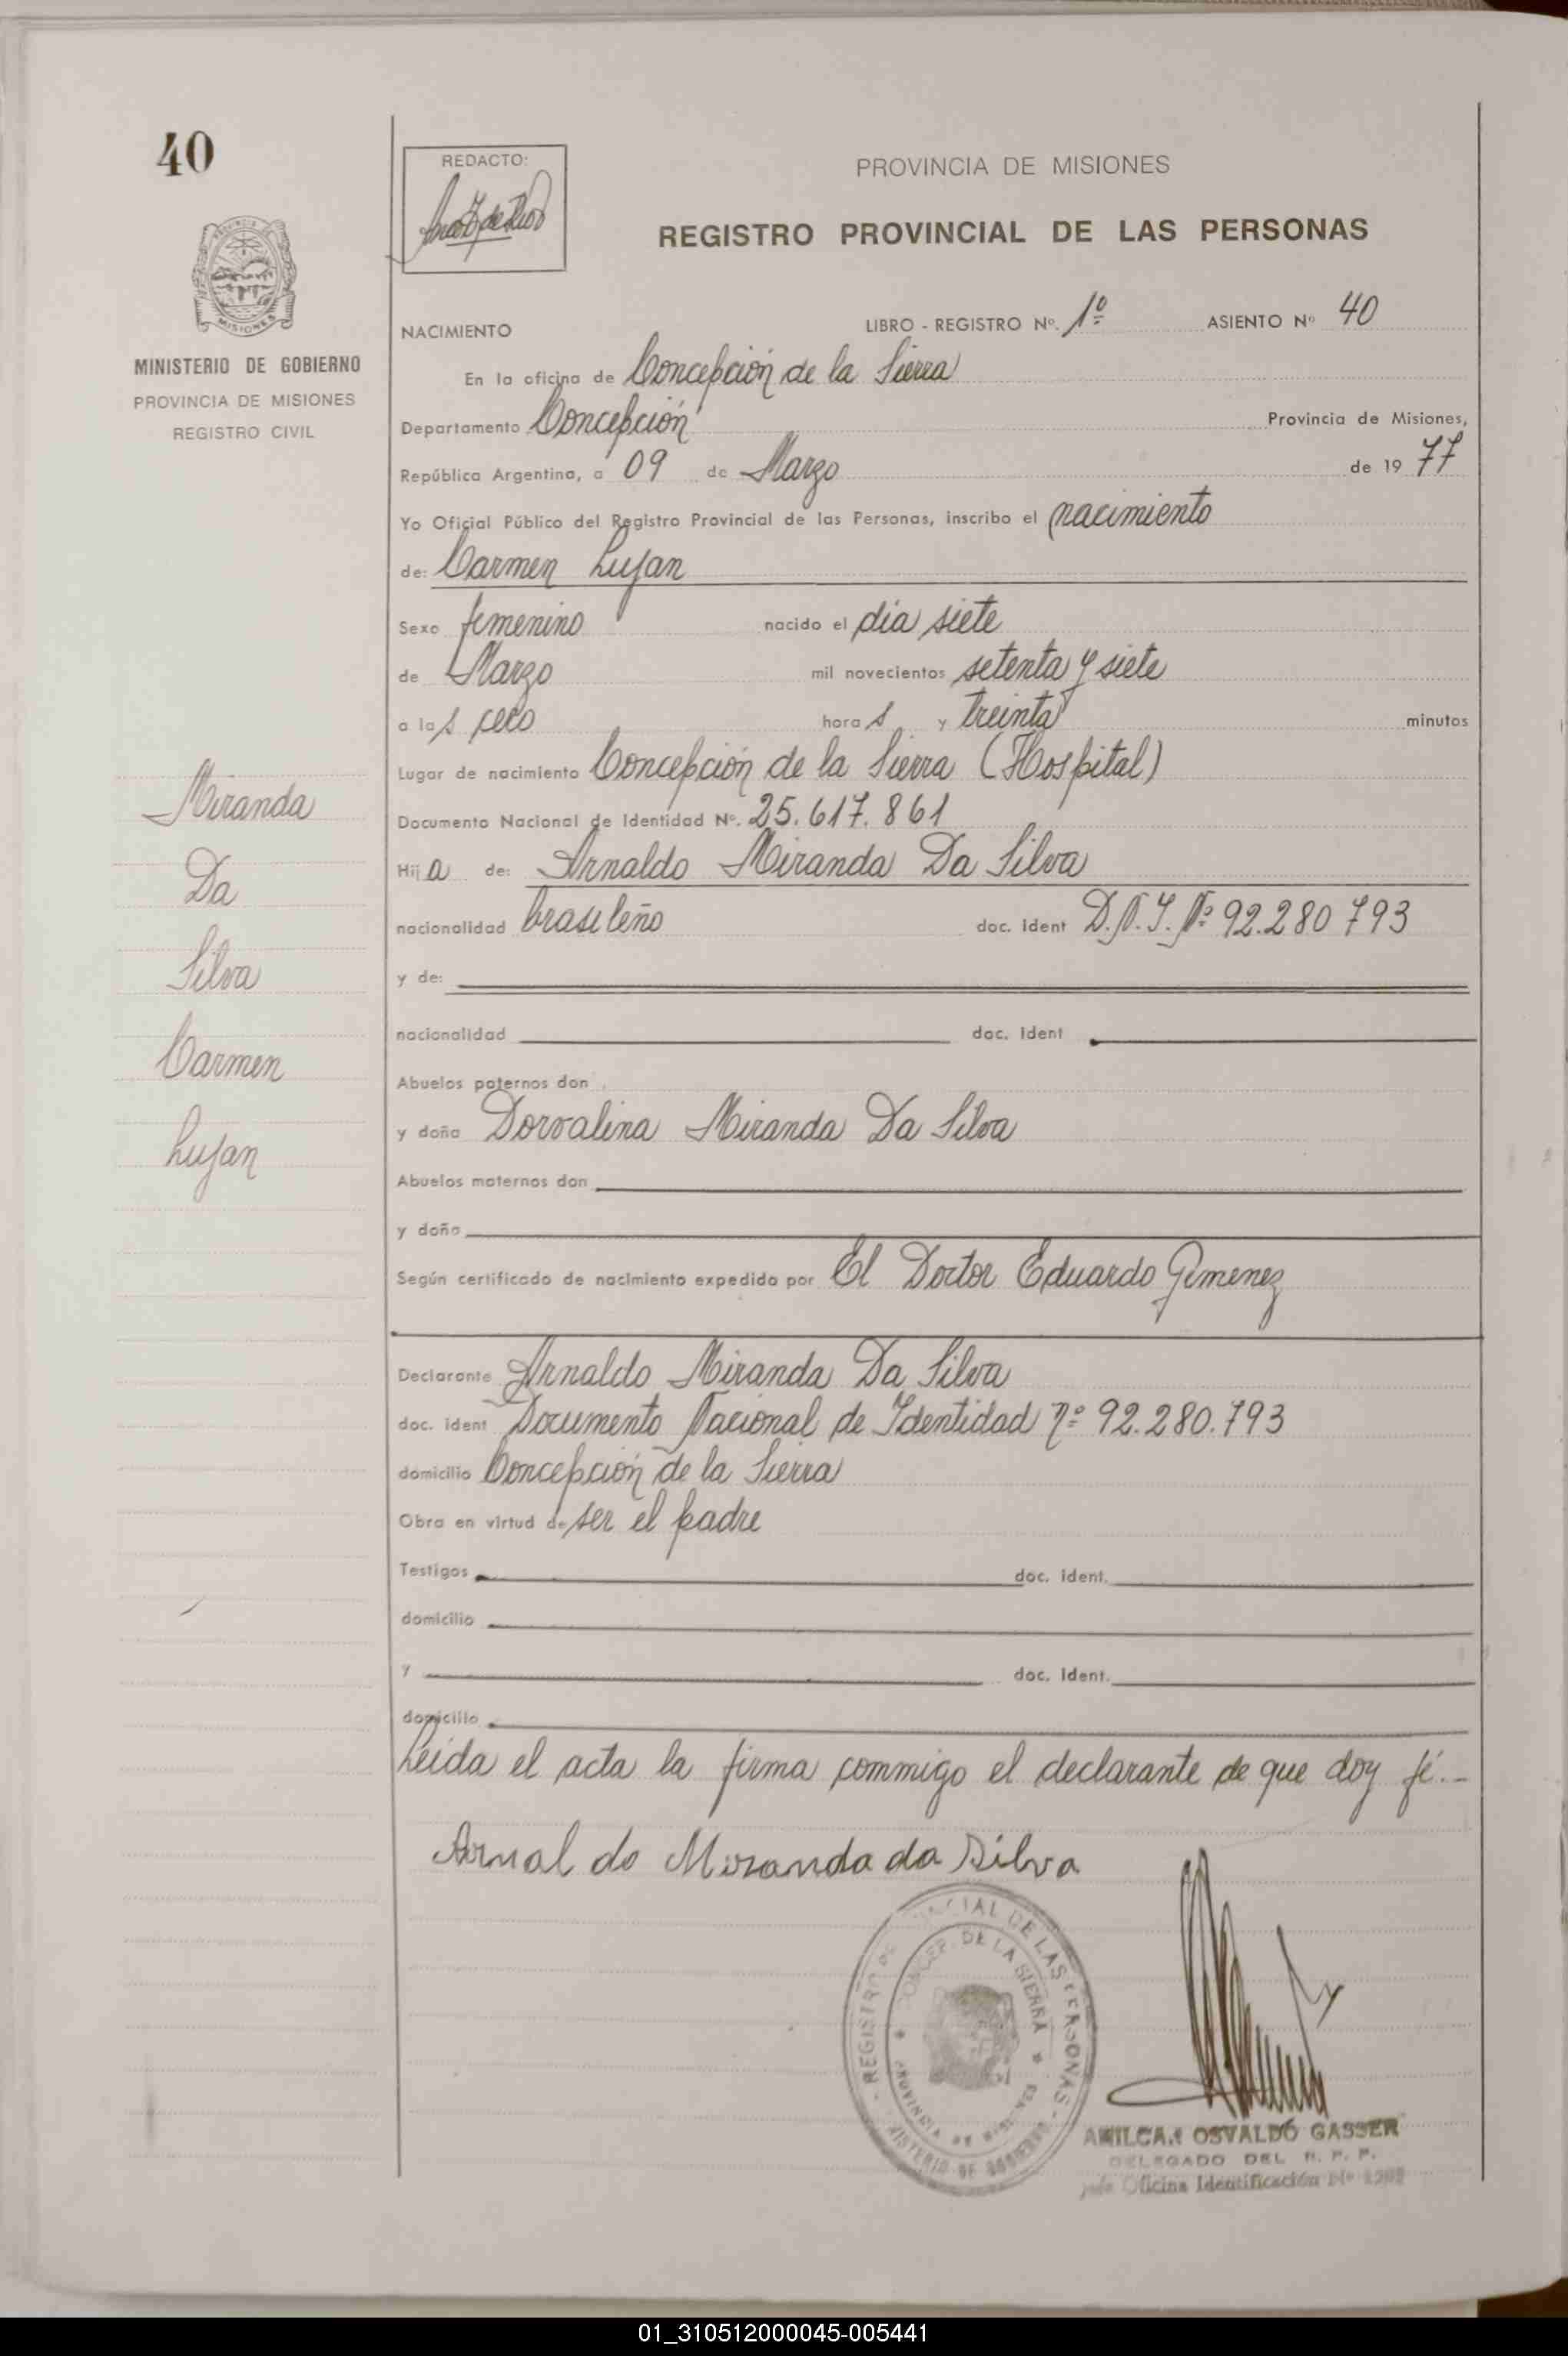 40
PROVINCIA
MISIONES
MINISTERIO DE GOBIERNO
PROVINCIA DE MISIONES
REGISTRO CIVIL
REDACTO:
PROVINCIA DE MISIONES
REGISTRO PROVINCIAL DE LAS PERSONAS
NACIMIENTO LIBRO - REGISTRO Nº. 1º ASIENTO Nº 40
En la oficina de Concepción de la Sierra
Departamento Concepción Provincia de Misiones,
República Argentina, a 09 de Marzo de 19 77
Yo Oficial Público del Registro Provincial de las Personas, inscribo el nacimiento
de: Carmen Lujan
Sexo femenino nacido el día siete
de Marzo mil novecientos setenta y siete
a las cero horas y treinta minutos
Lugar de nacimiento Concepción de la Sierra (Hospital)
Documento Nacional de Identidad Nº. 25.617.861
Hija de: Arnaldo Miranda Da Silva
nacionalidad brasileño doc. Ident D.N.I. Nº 92.280 793
y de:
nacionalidad doc. Ident
Abuelos paternos don
y doña Dorvalina Miranda Da Silva
Abuelos maternos don
y doña
Según certificado de nacimiento expedido por El Doctor Eduardo Gimenez
Declarante Arnaldo Miranda Da Silva
doc. ident Documento Nacional de Identidad nº 92.280.793
domicilio Concepción de la Sierra
Obra en virtud de ser el padre
Testigos doc. ident.
domicilio
y doc. Ident.
domicilio
Leída el acta la firma commigo el declarante de que doy fé.-
Arnal do Miranda da Silva
Miranda
Da
Silva
Carmen
Lujan
CONCEP. DE LA SIERRA
AMILCAR OSVALDO GASSER
DELEGADO DEL R. P. P.
Jefe Oficina Identificación Nº
01_310512000045-005441